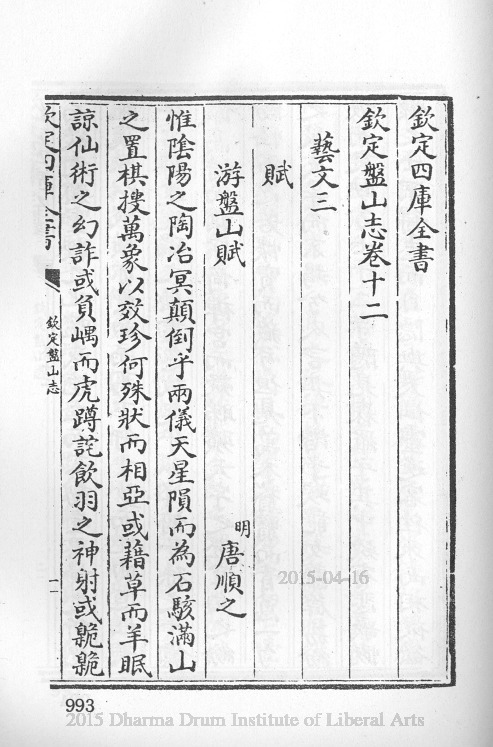 欽定四庫全書
欽定盤山志卷十二
藝文三
賦
游盤山賦 明 唐順之
惟陰陽之陶冶冥顛倒乎兩儀天星隕而為石駭滿山
之置棋搜萬象以效珍何殊狀而相亞或藉草而羊眠
諒仙術之幻詐或負嵎而虎蹲詫飲羽之神射或觤觤
欽定四庫全書
欽定盤山志
一
993
2015-04-16
2015 Dharma Drum Institute of Liberal Arts